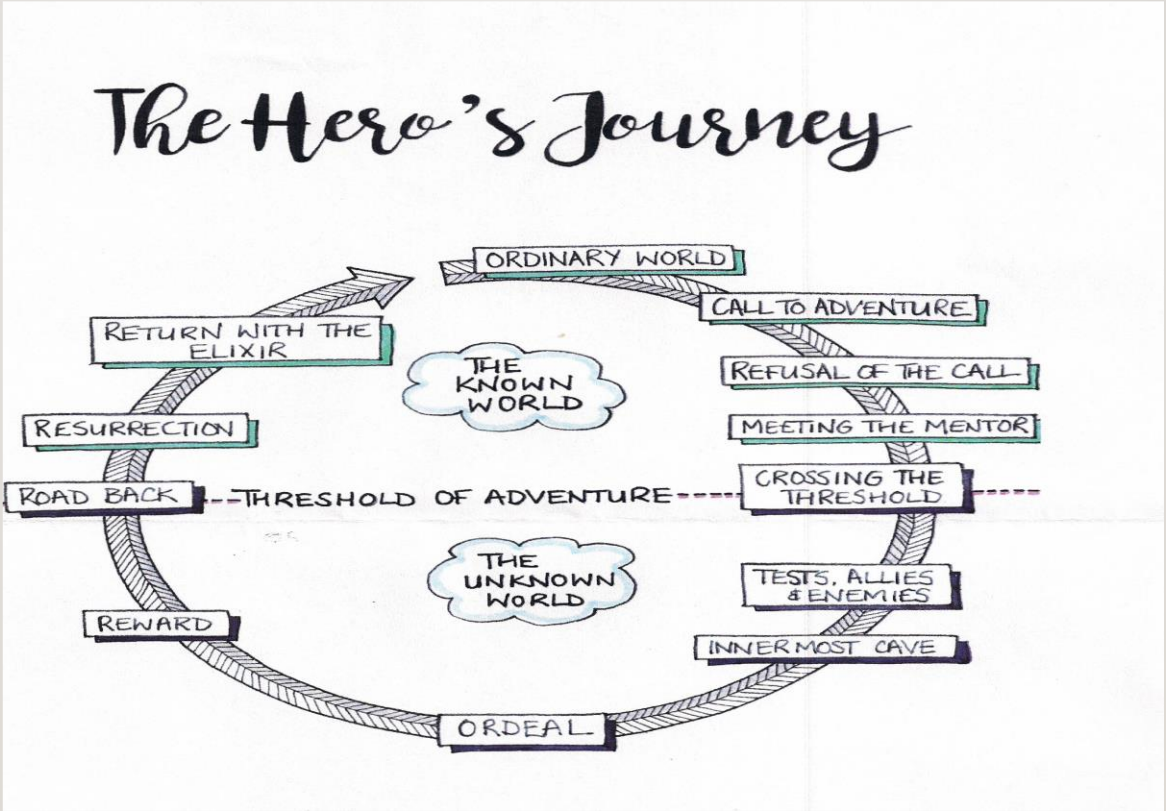 The Hero's Journey
ORDINARY WORLD
CALL TO ADVENTURE
REFUSAL OF THE CALL
MEETING THE MENTOR
CROSSING THE
THRESHOLD
TESTS, ALLIES
& ENEMIES
INNERMOST CAVE
ORDEAL
REWARD
ROAD BACK
RESURRECTION
RETURN WITH THE
ELIXIR
THE
KNOWN
WORLD
THRESHOLD OF ADVENTURE
THE
UNKNOWN
WORLD